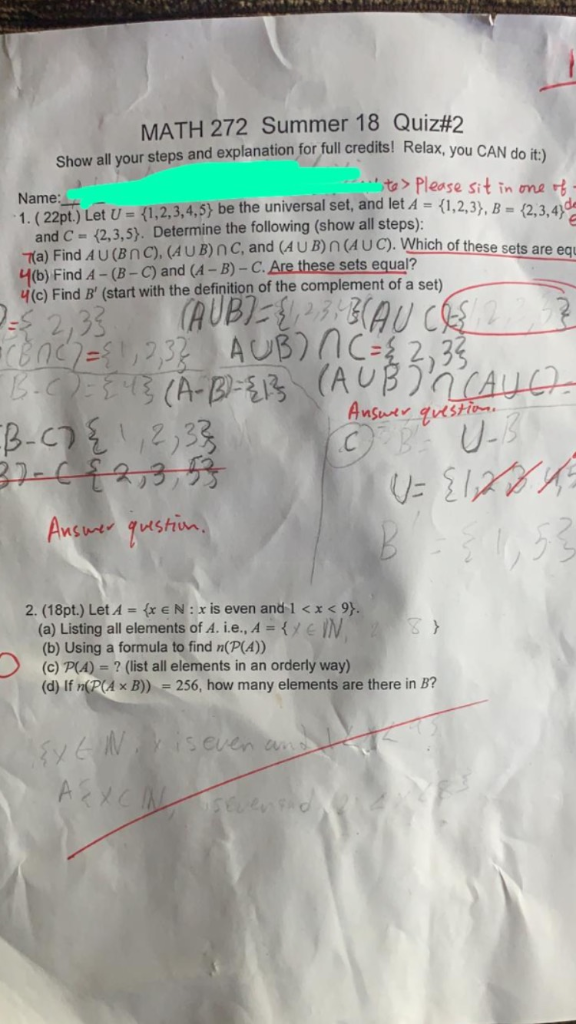 MATH 272 Summer 18 Quiz#2
Show all your steps and explanation for full credits! Relax, you CAN do it:)
Name: to> Please sit in one of
1. ( 22pt.) Let U = {1,2,3,4,5} be the universal set, and let A = {1,2,3}, B = {2,3,4}
and C = {2,3,5}. Determine the following (show all steps):
7(a) Find A ∪ (B ∩ C), (A ∪ B) ∩ C, and (A ∪ B) ∩ (A ∪ C). Which of these sets are equ
4(b) Find A − (B − C) and (A − B) − C. Are these sets equal?
4(c) Find B′ (start with the definition of the complement of a set)
={ 2,3} (AUB)={1,2,3, (AUC)={1,2,3,5}
(B∩C)={1,2,3} AUB)∩C={2,3}
B-C)={4} (A-B)={1} (AUB)∩(AUC)=
Answer question.
B-C) {1,2,3} (C) B′= U-B
B)-C {2,3,5} U= {1,2,3,4,5
Answer question.
B′={1,5}
2. (18pt.) Let A = {x ∈ ℕ : x is even and 1 < x < 9}.
(a) Listing all elements of A. i.e., A = { x∈IN, 8 }
(b) Using a formula to find n(P(A))
(c) P(A) = ? (list all elements in an orderly way)
(d) If n(P(A × B)) = 256, how many elements are there in B?
{x∈IN, x is even and 1<x<9}
A{x∈IN,